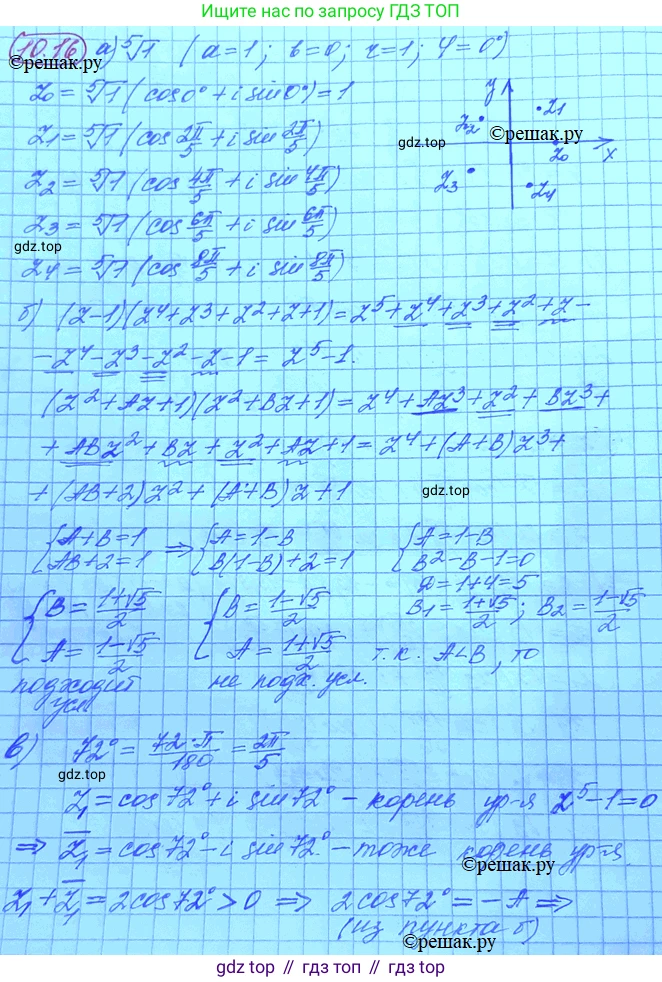 Ищите нас по запросу ГДЗ ТОП
10.16 а) ⁵√1 ( a=1; b=0; r=1; φ=0°)
©reшак.ру
z₀ = ⁵√1 (cos0° + i sin0°) = 1
z₁ = ⁵√1 (cos 2π/5 + i sin 2π/5)
z₂ = ⁵√1 (cos 4π/5 + i sin 4π/5)
z₃ = ⁵√1 (cos 6π/5 + i sin 6π/5)
z₄ = ⁵√1 (cos 8π/5 + i sin 8π/5)
y
z₁
z₂
©reшак.ру
gdz top
z₀
x
z₃
z₄
gdz top
б) (z-1)(z⁴+z³+z²+z+1) = z⁵+z⁴+z³+z²+z-
-z⁴-z³-z²-z-1 = z⁵-1.
(z²+Az+1)(z²+Bz+1) = z⁴+Az³+z²+Bz³+
+ABz²+Bz+z²+Az+1 = z⁴+(A+B)z³+
+(AB+2)z²+(A+B)z+1
gdz top
{A+B=1 ⇒ {A=1-B {A=1-B
{AB+2=1 {B(1-B)+2=1 {B²-B-1=0
D=1+4=5
{B= (1+√5)/2 {B= (1-√5)/2 B₁= (1+√5)/2; B₂= (1-√5)/2
{A= (1-√5)/2 {A= (1+√5)/2 т.к. A<B, то
подходит не подх. усл.
усл
в) 72° = 72·π/180 = 2π/5
gdz top
z₁ = cos72° + i sin72° - корень ур-я z⁵-1=0
⇒ z̄₁ = cos72° - i sin72° - тоже корень ур-я
©reшак.ру
z₁ + z̄₁ = 2cos72° > 0 ⇒ 2cos72° = -A ⇒
(из пункта б)
©reшак.ру
gdz top // гдз топ // gdz top